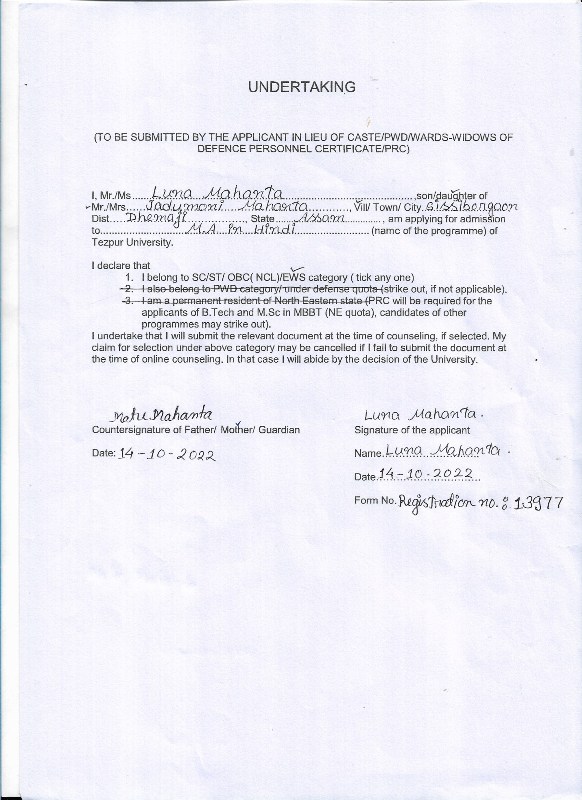 UNDERTAKING
(TO BE SUBMITTED BY THE APPLICANT IN LIEU OF CASTE/PWD/WARDS-WIDOWS OF
DEFENCE PERSONNEL CERTIFICATE/PRC)
I, Mr./Ms Luna Mahanta, son/daughter of
Mr./Mrs. Jadumoni Mahanta, Vill/ Town/ City. Sissiborgaon
Dist. Dhemaji, State Assam, am applying for admission
to M.A. in Hindi (name of the programme) of
Tezpur University.
I declare that
1. I belong to SC/ST/ OBC( NCL)/EWS category ( tick any one)
2. I also belong to PWD category/ under defense quota (strike out, if not applicable).
3. I am a permanent resident of North Eastern state (PRC will be required for the
applicants of B.Tech and M.Sc in MBBT (NE quota), candidates of other
programmes may strike out).
I undertake that I will submit the relevant document at the time of counseling, if selected. My
claim for selection under above category may be cancelled if I fail to submit the document at
the time of online counseling. In that case I will abide by the decision of the University.
Mahanta
Countersignature of Father/ Mother/ Guardian
Date: 14-10-2022
Luna Mahanta.
Signature of the applicant
Name. Luna Mahanta.
Date 14-10-2022
Form No. Registration no. : 13977